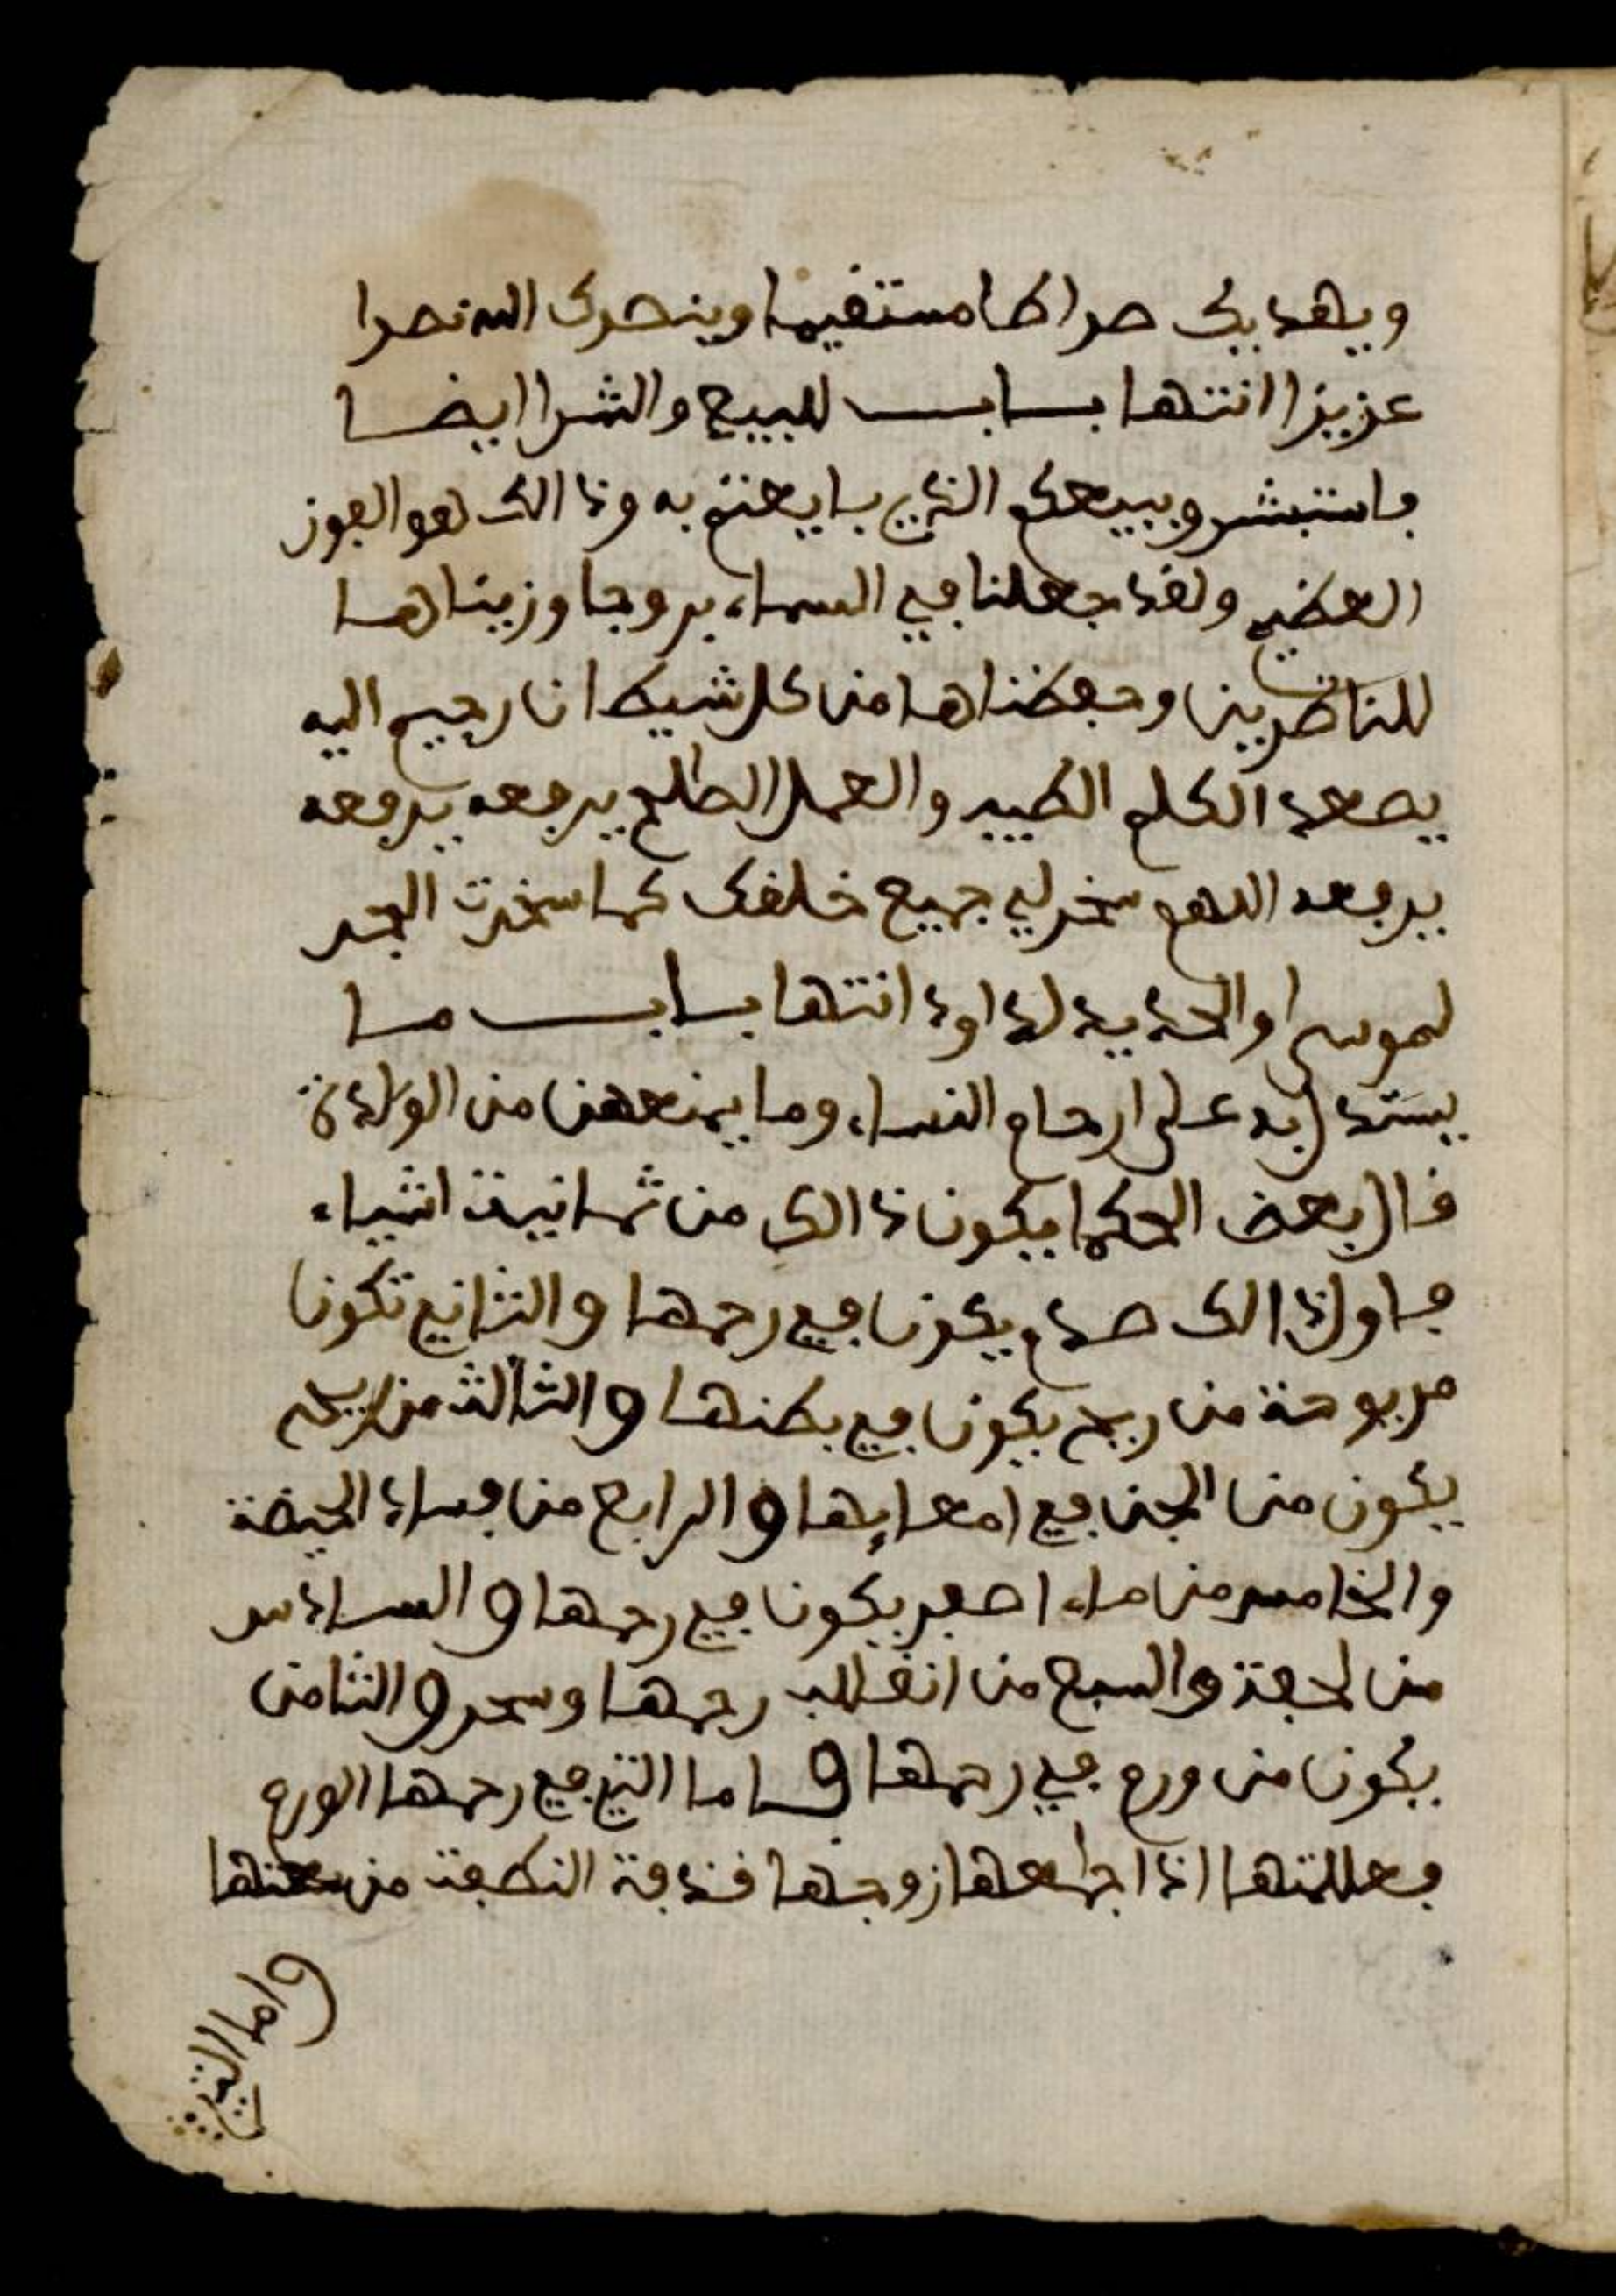 ويهديك صراطا مستقيما وينصرك الله نصرا
عزيزا انتها باب للبيع والشرا ايضا
فاستبشرو ببيعكم الذي بايعتم به وذالك هو الفوز
العظيم ولقد جعلنا في السماء بروجا وزيناها
للناظرين وحفظناها من كل شيطان رجيم اليه
يصعد الكلم الطيب والعمل الصلح يرفعه يرفعه
يرفعه اللهم سخر لي جميع خلقك كما سخرت البحر
لموسى والحديد لداود انتها باب ما
يستدل به على ارحام النساء وما يمنعهن من الولادة
قال بعض الحكما يكون ذالك من ثمانية اشياء
فاول ذالك يكون في رحمها والثاني تكون
من ريح يكون في بطنها والثالث من ريح
يكون من الجن في امعايها والرابع من فساد الحيضة
والخامس من ماء اصفر يكون في رحمها والسادس
من والسبع من انقلب رحمها وسحر والثامن
يكون من ورم في رحمها واما التي في رحمها الورم
فعللمتها اذا جامعها زوجها النطفة من
واما التي